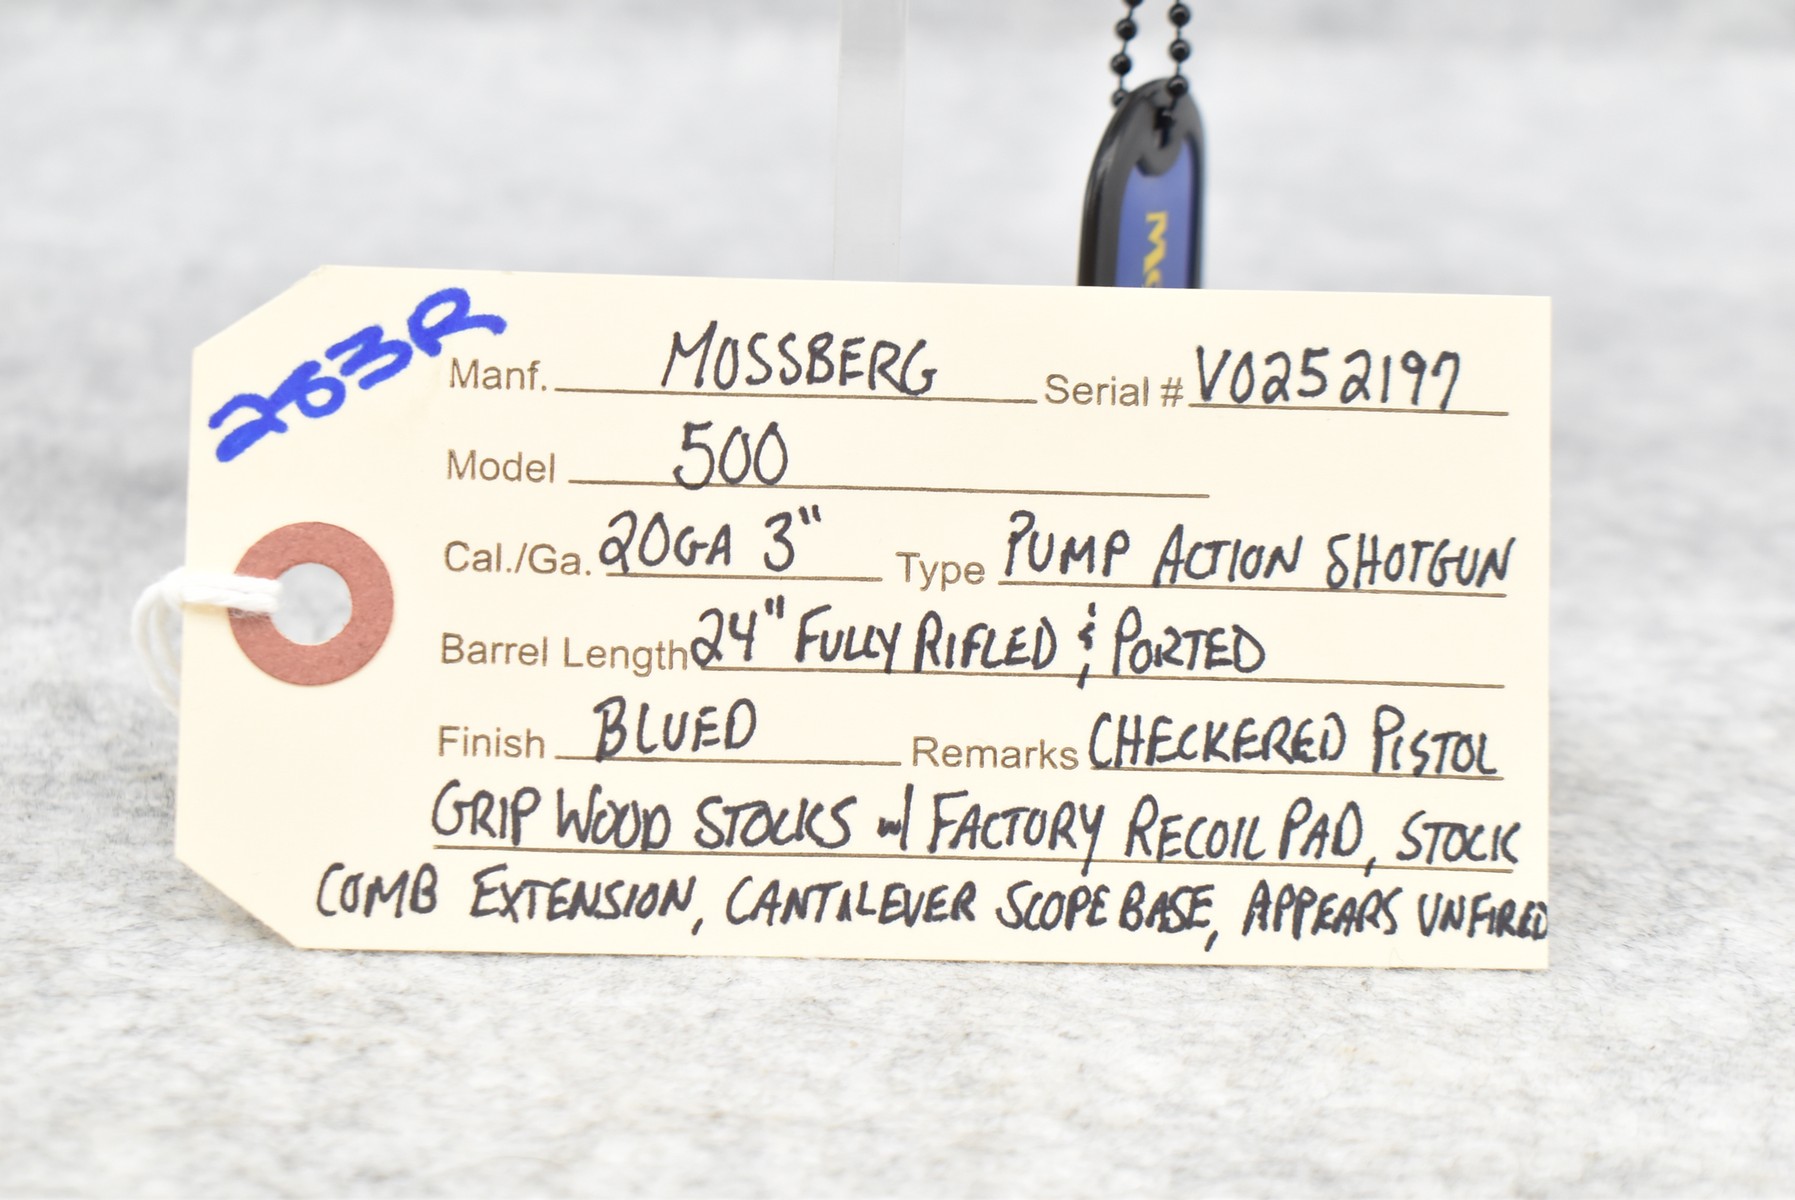 283R
Manf. MOSSBERG Serial # V0252197
Model 500
Cal./Ga. 20GA 3" Type PUMP ACTION SHOTGUN
Barrel Length 24" FULLY RIFLED & PORTED
Finish BLUED Remarks CHECKERED PISTOL
GRIP WOOD STOCKS w/ FACTORY RECOIL PAD, STOCK
COMB EXTENSION, CANTILEVER SCOPE BASE, APPEARS UNFIRED